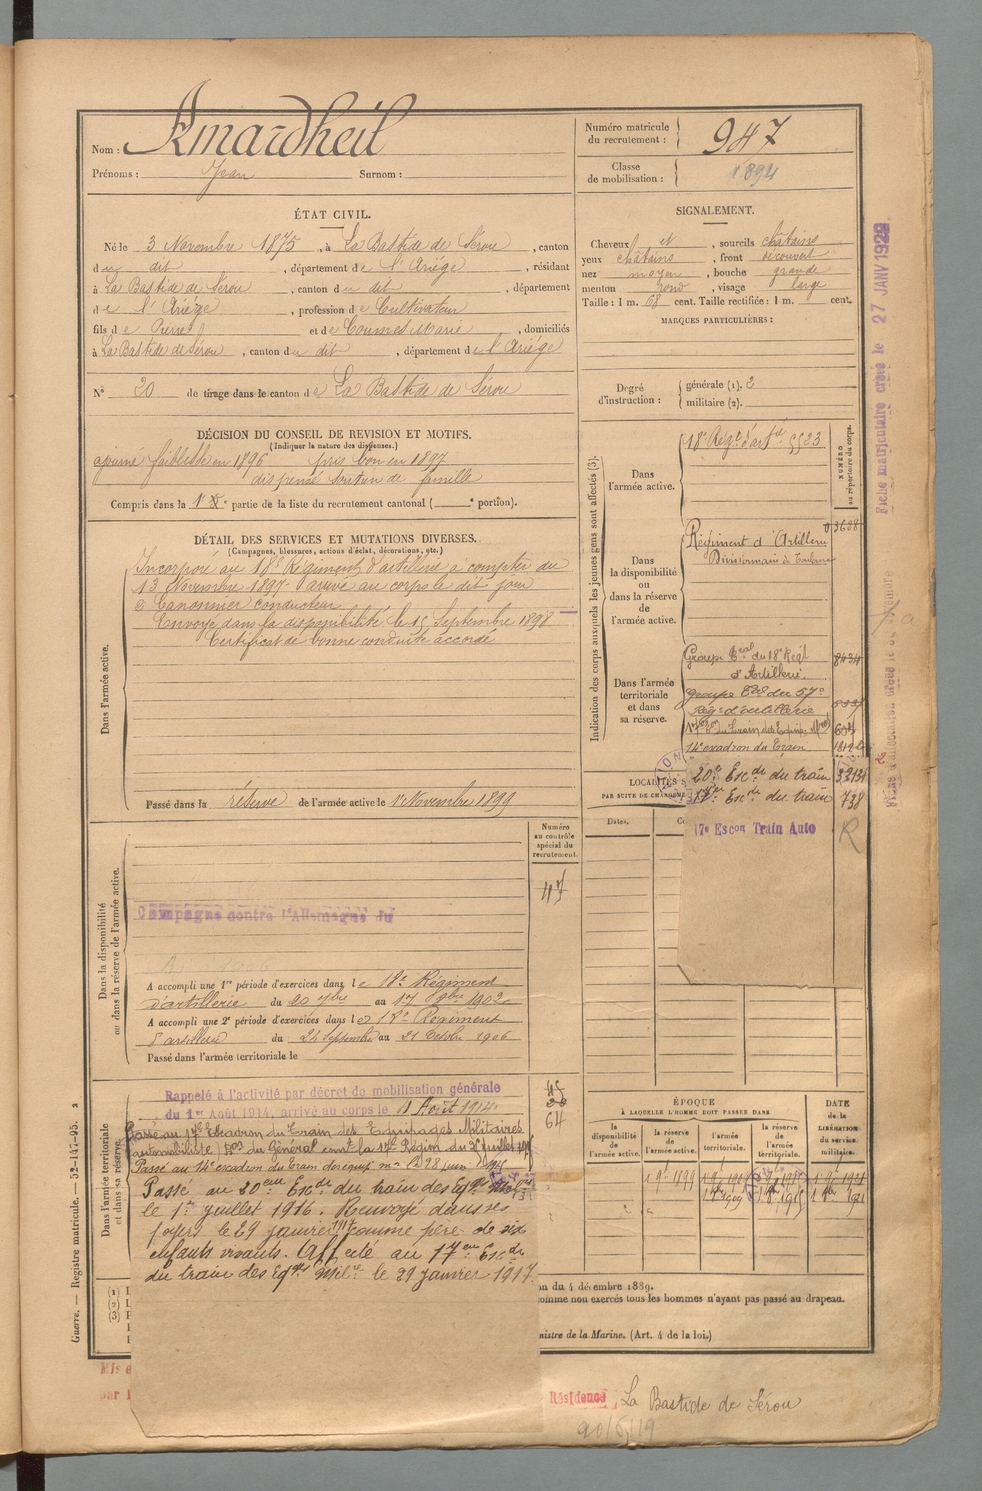 Nom : Amardheil
Prénoms : Jean Surnom :
Numéro matricule
du recrutement : 947
Classe
de mobilisation : 1894
ÉTAT CIVIL.
Né le 3 Novembre 1875, à La Bastide de Sérou, canton
du dit, département de l'Ariége, résidant
à La Bastide de Sérou, canton du dit, département
de l'Ariége, profession de Cultivateur
fils de Pierre et de Coumes Marie, domiciliés
à La Bastide de Sérou, canton du dit, département de l'Ariége
N° 20 de tirage dans le canton de La Bastide de Sérou
SIGNALEMENT.
Cheveux et, sourcils châtains
yeux châtains, front découvert
nez moyen, bouche grande
menton rond, visage large
Taille : 1 m. 68 cent. Taille rectifiée : 1 m. cent.
MARQUES PARTICULIÈRES :
Degré
d'instruction :
générale (1). 2
militaire (2).
DÉCISION DU CONSEIL DE REVISION ET MOTIFS.
(Indiquer la nature des dispenses.)
ajourné faiblesse en 1896 pris bon en 1897
dispensé soutien de famille
Compris dans la 1e partie de la liste du recrutement cantonal ( e portion).
DÉTAIL DES SERVICES ET MUTATIONS DIVERSES.
(Campagnes, blessures, actions d'éclat, décorations, etc.)
Dans l'armée active.
Incorporé au 18e Régiment d'artillerie à compter du
13 Novembre 1897 arrivé au corps le dit jour
2e Canonnier conducteur
Envoyé dans la disponibilité le 15 Septembre 1898
Certificat de bonne conduite accordé
Passé dans la réserve de l'armée active le 1er Novembre 1899
Indication des corps auxquels les jeunes gens sont affectés (3).
NUMÉRO
au répertoire du corps.
Dans
l'armée active.
18e Régt d'artie 5523
Dans
la disponibilité
ou
dans la réserve
de
l'armée active.
Régiment d'Artillerie 3638
Divisionnaire de Toulouse
Dans l'armée
territoriale
et dans
sa réserve.
Groupe Tal du 18e Régt 8434
d'Artillerie.
groupe Tal du 57e
Régt d'artillerie
17e Eon du Train des Equip. Mres 604
14e escadron du Train
20e Escdr du train
17e Escdr du train 738
17e Escon Train Auto R
LOCALITÉS S
PAR SUITE DE CHANGEME
Dates.
Numéro
au contrôle
spécial du
recrutement.
47
Dans la disponibilité
ou dans la réserve de l'armée active.
Campagne contre l'Allemagne du
A accompli une 1re période d'exercices dans le 18e Régiment
d'artillerie du 20 7bre au 17 8bre 1902
A accompli une 2e période d'exercices dans le 18e Régiment
d'artillerie du 24 Septembre au 21 Octobre 1906
Passé dans l'armée territoriale le
Dans l'armée territoriale
et dans sa réserve.
Rappelé à l'activité par décret de mobilisation générale
du 1er Août 1914, arrivé au corps le Août 1914
64
Passé au 17e Escadron du Train des Equipages Militaires
(automobiliste) du Général comt la 17e Région du Juillet
Passé au 14e escadron du Train des equip. mres le 28 juin
Passé au 20eme Escdr du train des Eqges
le 1er juillet 1916. Renvoyé dans ses
foyers le 29 janvier 1917 comme père de six
enfants vivants. Affecté au 17eme Escdr
du train des Eqges Milres le 29 janvier 1917.
ÉPOQUE
À LAQUELLE L'HOMME DOIT PASSER DANS
la
disponibilité
de
l'armée active.
la réserve
de
l'armée active.
l'armée
territoriale.
la réserve
de
l'armée
territoriale.
DATE
de la
LIBÉRATION
du service
militaire.
(1)
(2)
(3)
on du 4 décembre 1889.
comme non exercés tous les hommes n'ayant pas passé au drapeau.
nistre de la Marine. (Art. 4 de la loi.)
Guerre. — Registre matricule. — 52-147-95.
Fiche matriculaire créée le 27 JANV 1922
Mis e
par
Résidence La Bastide de Sérou
20/6/19